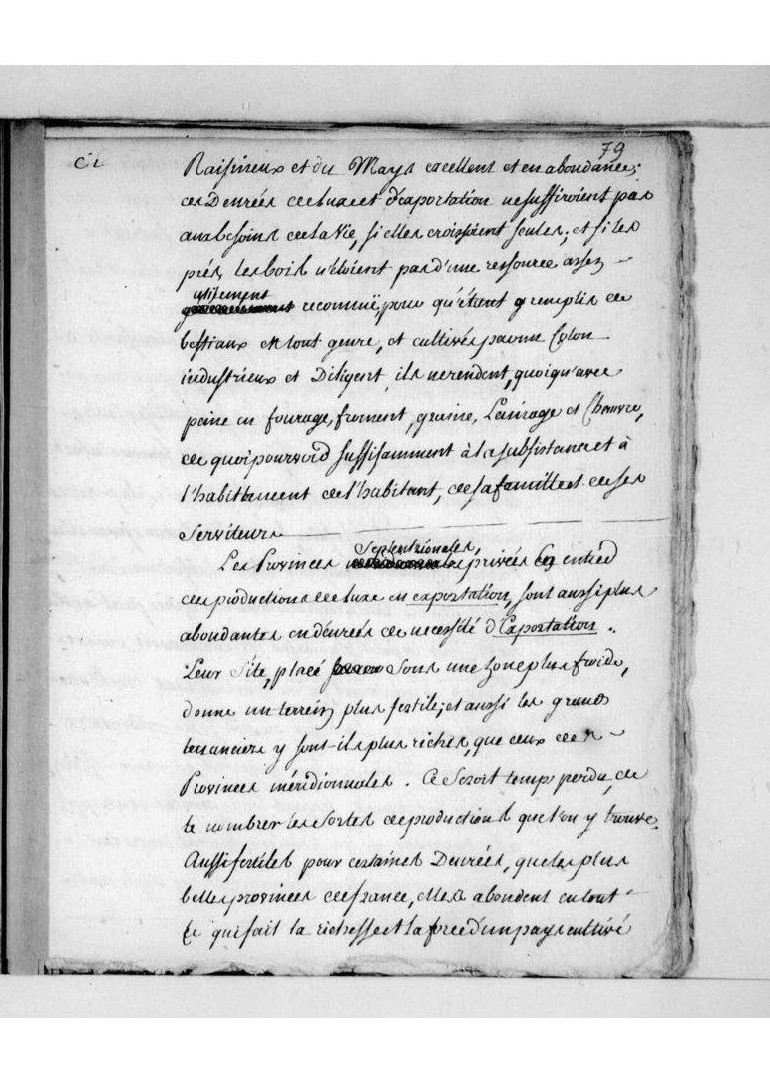 79
Raisineux et du Mays excellent et en abondance;
ces Denrées de luxe et d'exportation ne suffiroient pas
aux besoins de la Vie, si elles croissoient seules; et si les
prés, les bois n'étoient pas d'une ressource assez
utilement
reconnuë, pour qu'étant remplis de
bestiaux en tout genre, et cultivés par un Colon
industrieux et Diligent, ils ne rendent, quoiqu'avec
peine en fourage, froment, graine, Lainage et Chanvre,
de quoi pourvoid suffisamment à la subsistance et à
l'habillement de l'habitant, de sa famille et de ses
Serviteurs
Septentrionales,
Les Provinces privées en entied
des productions de luxe en exportation, sont aussi plus
abondantes en dénrées de necessité d'Exportation.
Leur Site, placé Sous une Zone plus froide,
donne un terrein plus fertile; et aussi les grands
tenanciers y sont-ils plus riches, que ceux des
Provinces méridionnales. Ce Seroit temps perdu, de
te nombrer les sortes de productions que l'on y trouve.
Aussi fertiles pour certaines Denrées, que les plus
belles provinces de france, elles abondent en tout
ce qui fait la richesse et la force d'un pays cultivé